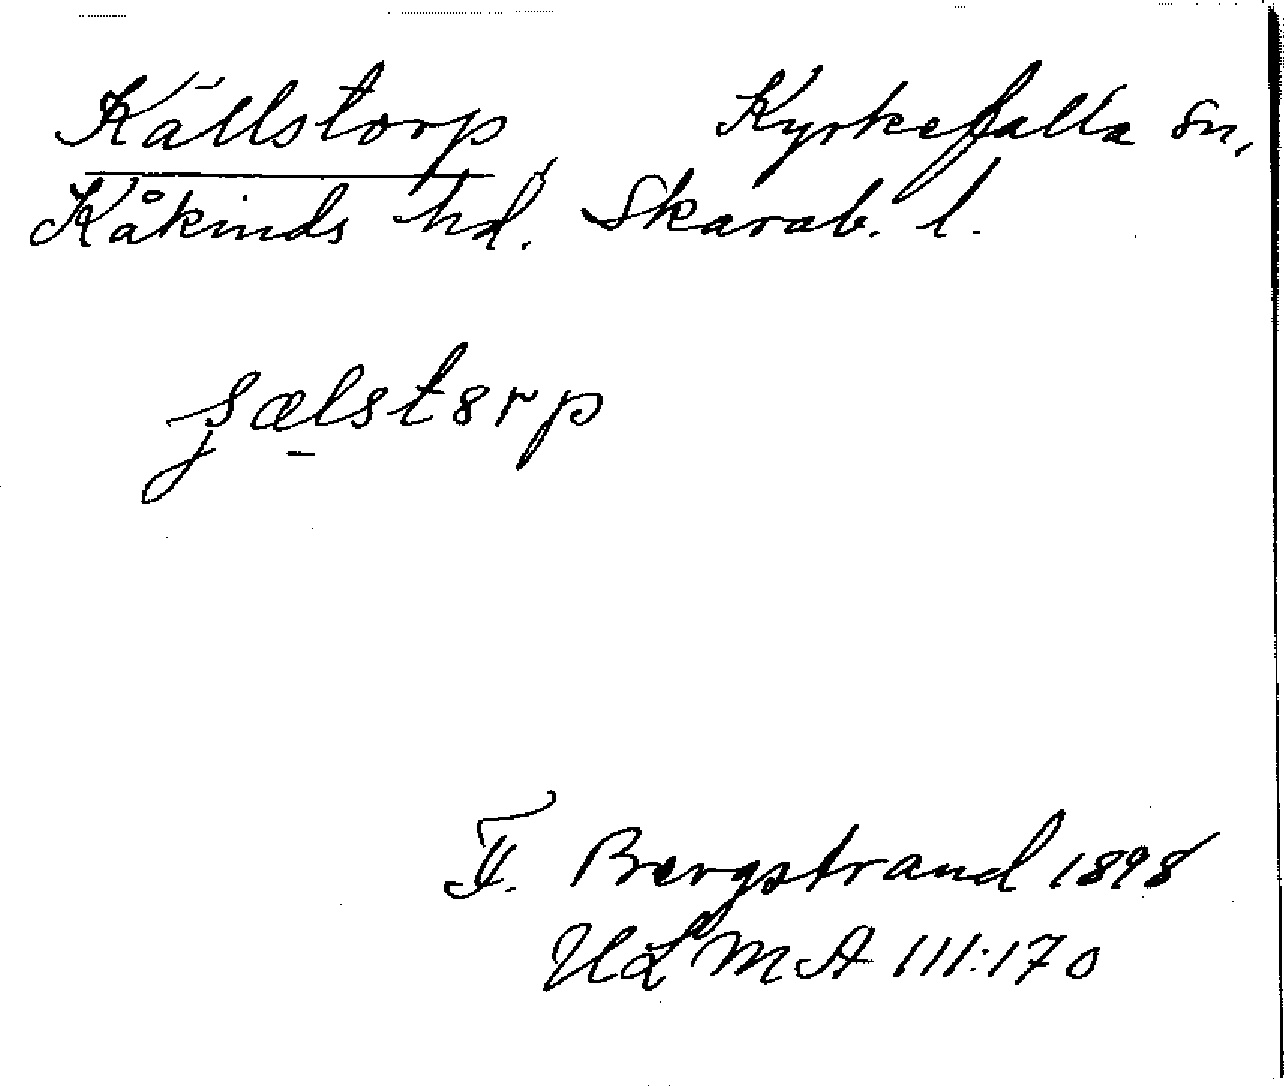 Källstorp Kyrkefalla sn,
Kåkinds hd. Skarab. l.
ʂæ̠lstɞrp
F. Bergstrand 1898
ULMA 111:170